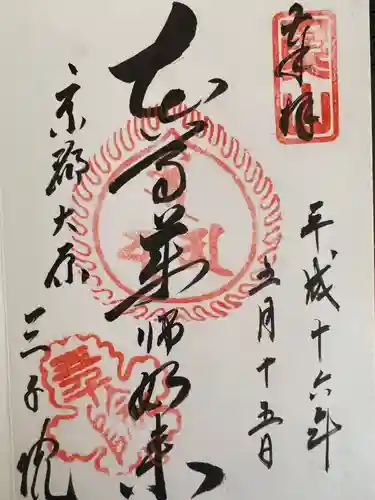 奉拝
平成十六年
五月十五日
薬師如来
京都大原
三千院